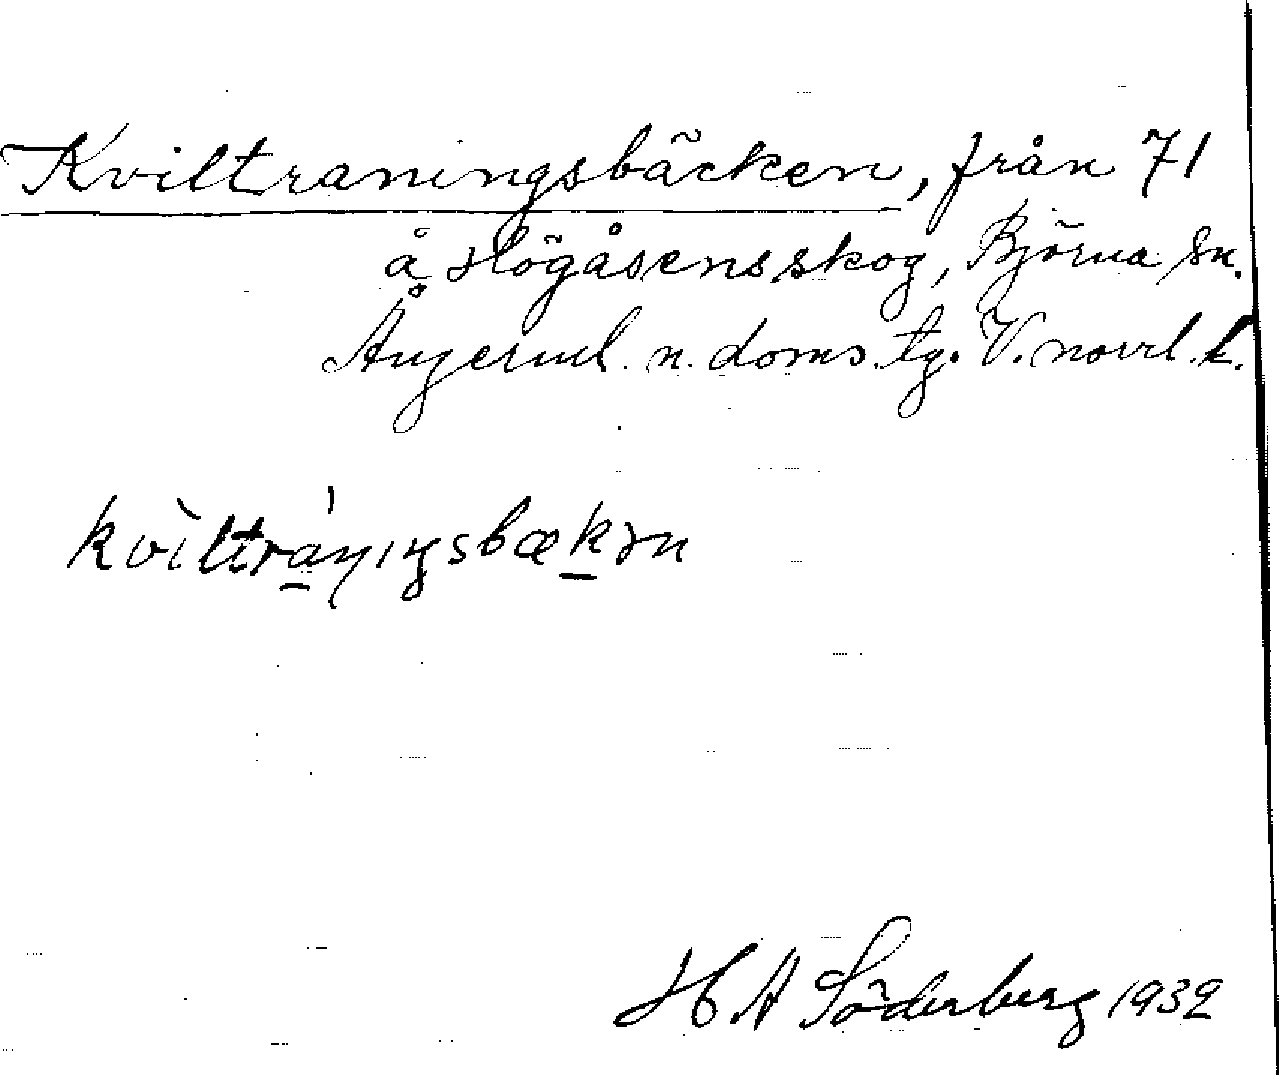 Kviltraningsbäcken, från 71
å Högåsens skog, Björna sn.
Ångerml. n. doms. tg. V. norrl. l.
kvìltrániŋsbækən
H A Söderberg 1932